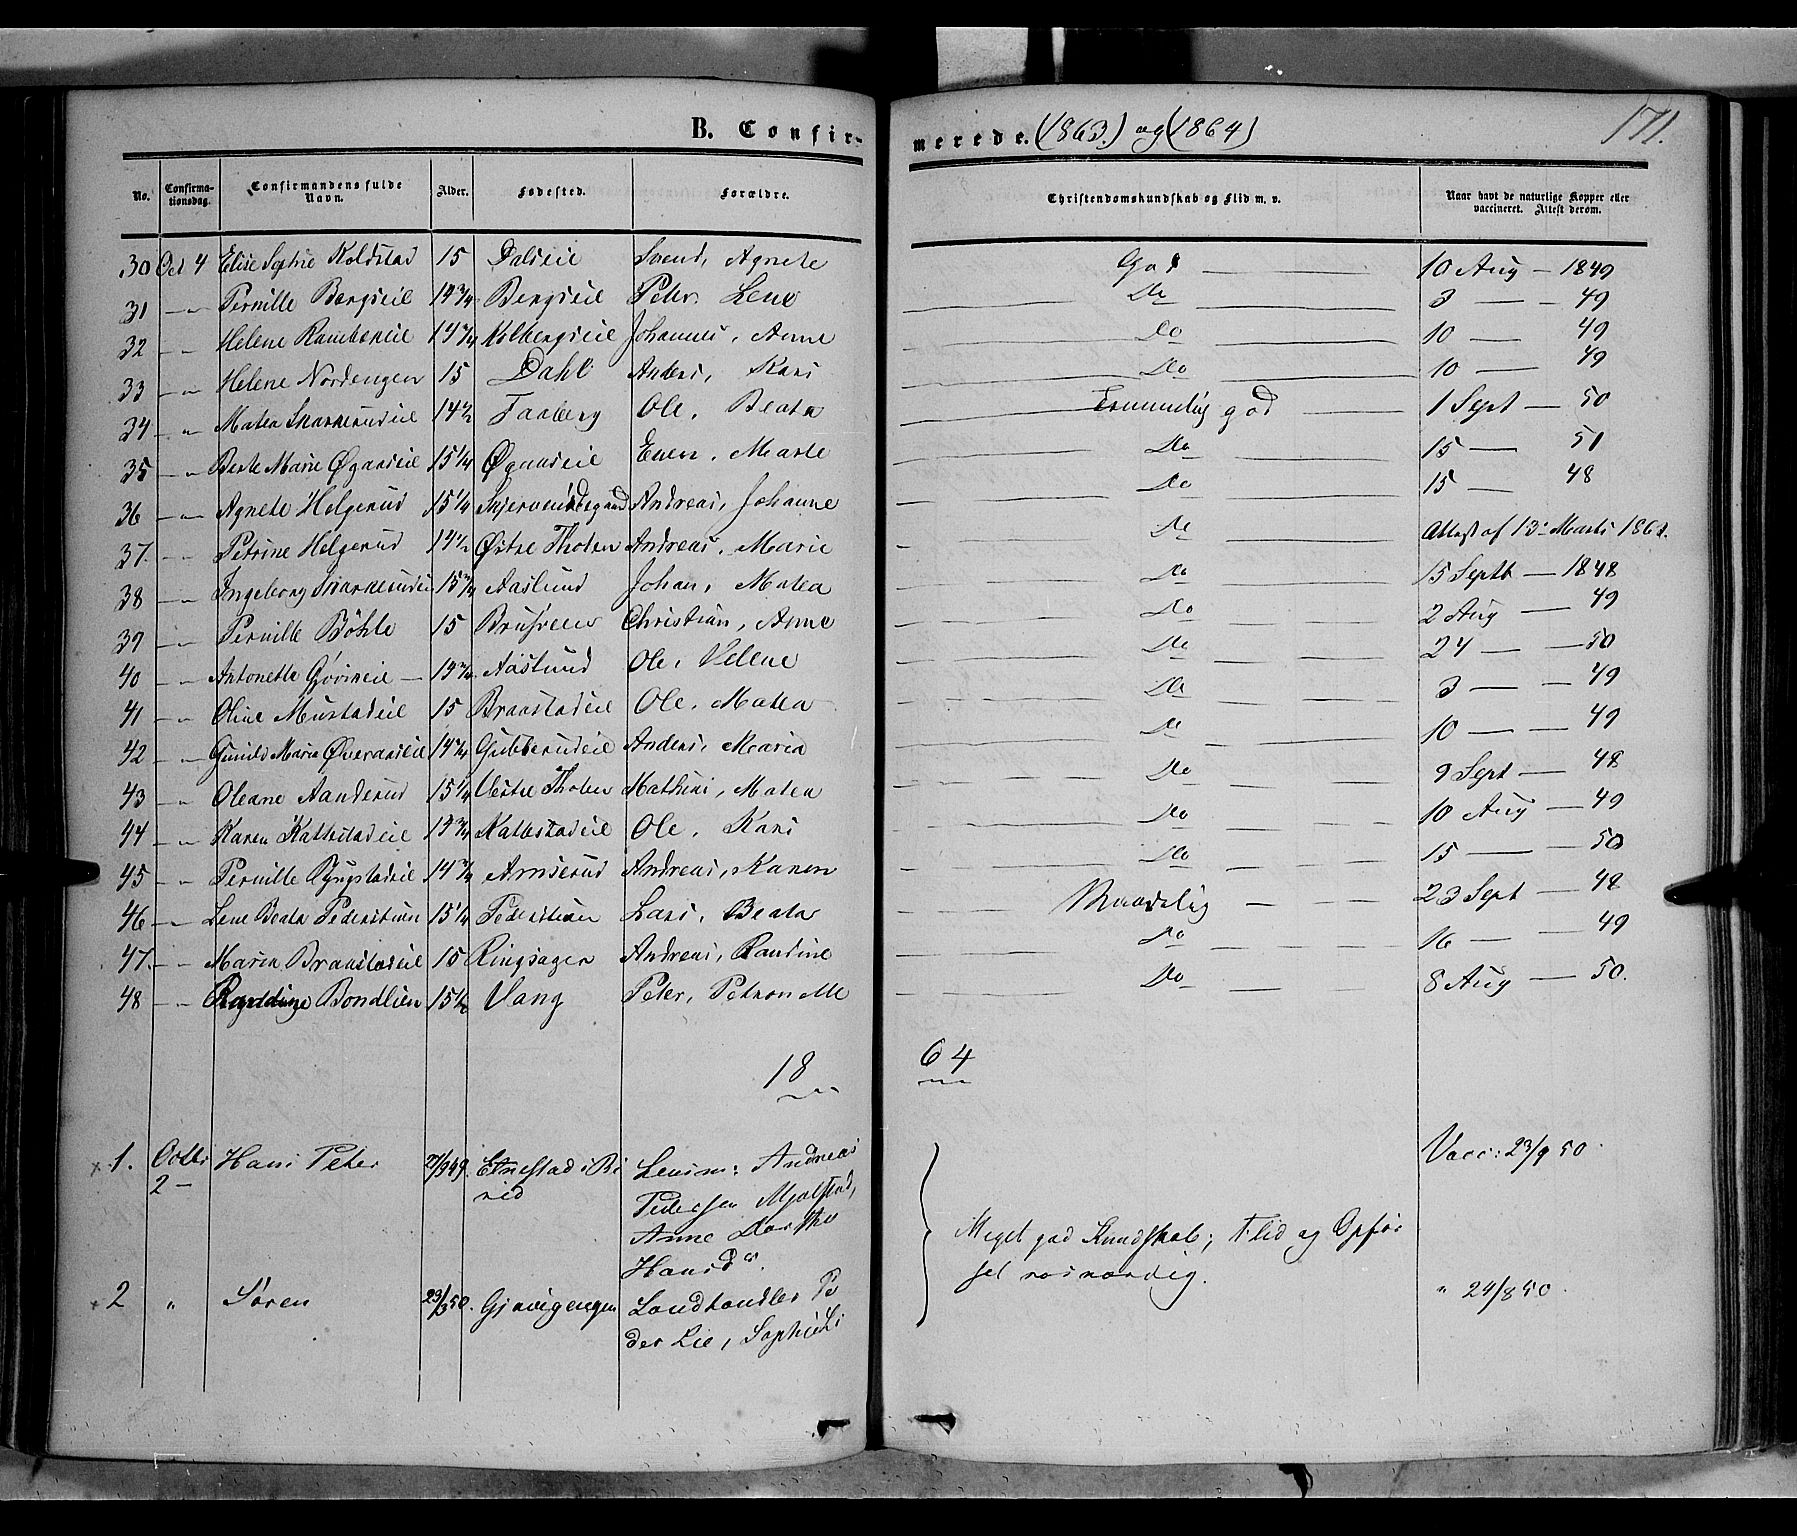 B. Confir-
merede. (1863.) og (1864)
171.
No. Confirma-tionsdag. Confirmandens fulde Navn. Alder. Fødested. Forældre. Christendomskundskab og Flid m. v. Naar havt de naturlige Kopper eller vaccineret. Attest derom.
30 Oct 4 Elise Sophie Koldstad 15 Dalseie Svend, Agnete God 10 Aug — 1849
31 — " Pernille Bergseie 14 3/4 Bergseie Peter. Lene Do 3 — 49
32 — " Helene 14 3/4 Kolbergseie Johannes, Anne Do 10 — 49
33 — " Helene Nordengen 15 Dahl Anders, Kari Do 10 — 49
34 — " Mathea Skarnerudeie 14 1/2 Faaberg Ole, Beata Temmelig god 1 Sept — 50
35 — " Berte Marie Øgaaseie 15 1/4 Øgaaseie Even, Marte Do 15 — 51
36 — " Agnete Helgerud 15 1/4 Andreas, Johanne Do 15 — 48
37. — " Petrine Helgerud 14 1/2 Østre Thoten Andreas, Marie Do Attest af 13' Marts
38 — " Ingeborg 15 3/4 Aaslund Johan, Matea Do 15 Septb — 1848
39 — " Pernille Böhle 15 Christian, Anne Do 2 Aug — 49
40 — " Antonette 14 3/4 Aaslund Ole, Helene Do 24 — 50
41 — " Oline Mustadeie 15 Braastadeie Ole, Matea Do 3 — 49
42 — " Gunild Maria Øveraaseie 14 3/4 Gubberudeie Anders, Maria Do 10 — 49
43 — " Oleane Aanderud 15 1/4 Vestre Thoten Mathias, Matea Do 9 Sept — 48
44 — " Karen Kattestadeie 14 3/4 Kattestadeie Ole, Kari Do 10 Aug — 49
45 — " Pernille Ryngstadeie 14 3/4 Arnserud Andreas, Karen Do 15 — 50
46 — " Lene Beata Pederstuen 15 1/4 Pederstuen Lars, Beata Maadelig 23 Sept — 48
47. — " Maren Braastadeie 15 Ringsager Andreas, Randine Do 16 — 49
48 — " Bondlien 15 1/2 Vang Peter, Petronelle Do 8 Aug — 50.
18 64
× 1. Octbr 2 — Hans Peter 27/9 49. Etnestad i Bi
rid Lensm: Andreas
Pedersen Mjølstad,
Anne Dorthe
Hansdr. Vacc: 23/9 50.
Meget god Kundskab; Flid og Opfør
sel rosværdig.
× 2 " Søren 23/3 50. Gjøvigengen Landhandler Pe
der Lie, Sophie Li " 24/8 50.